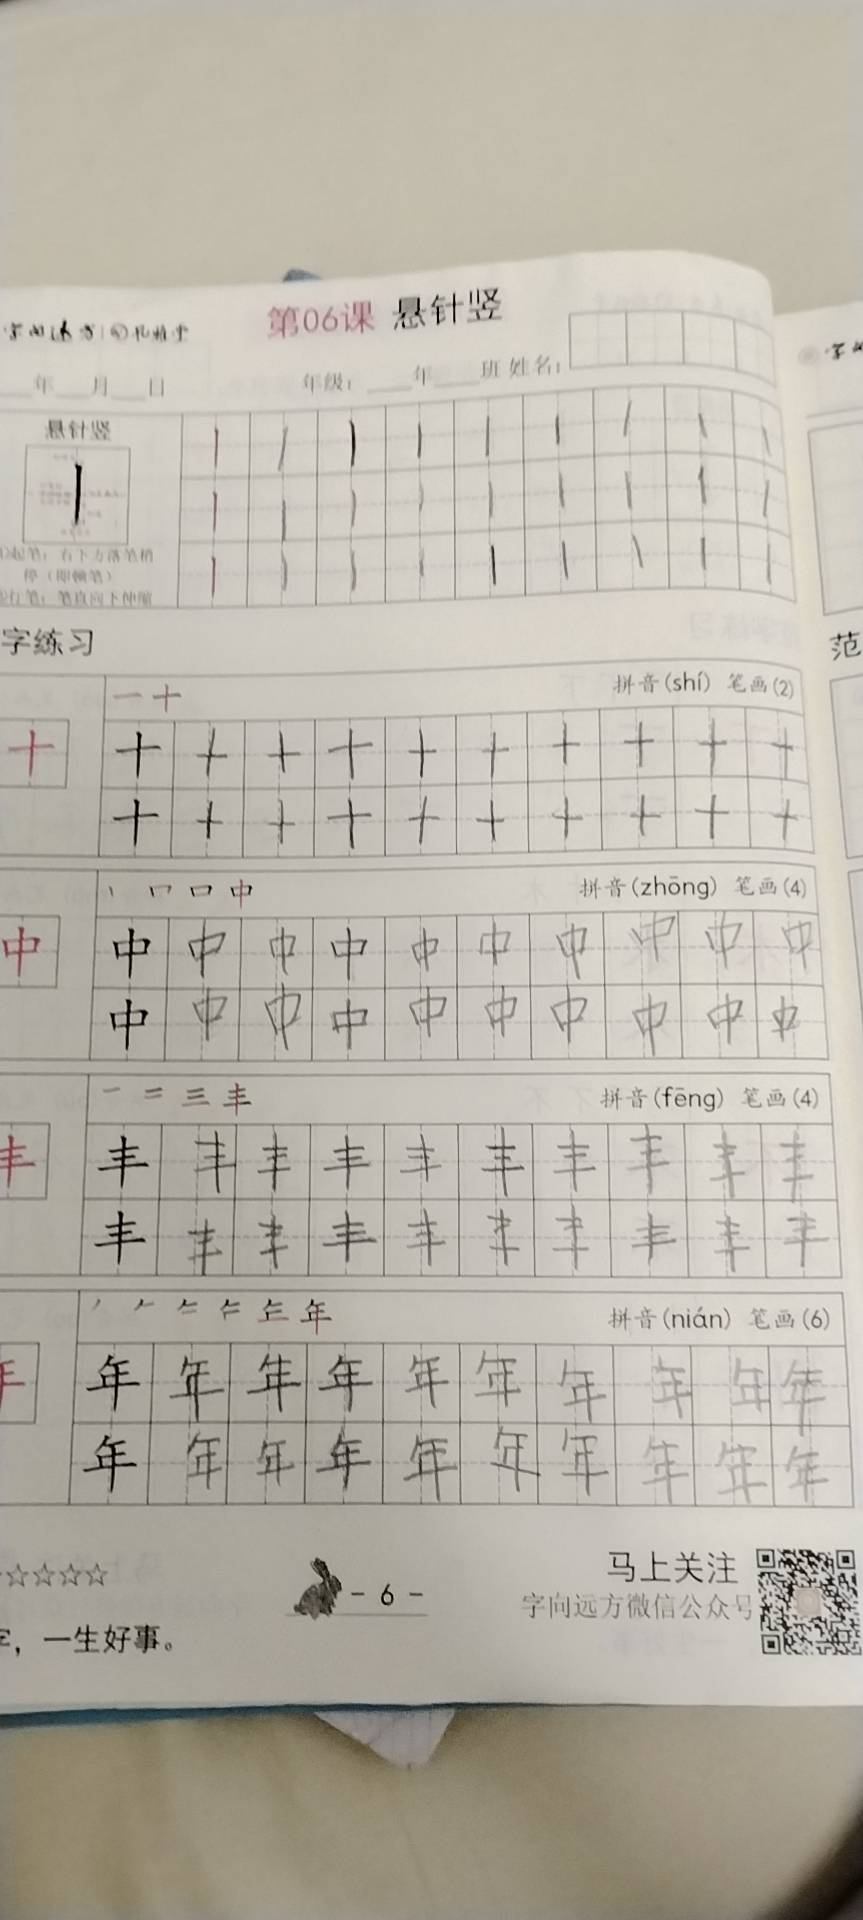 第06课 悬针竖
年 月 日 年级: 年 班 姓名:
悬针竖
字练习
一 十 拼音(shí) 笔画(2)
十 十 十 十 十 十 十 十 十 十 十
十 十 十 十 十 十 十 十 十 十
丨 冖 口 中 拼音(zhōng) 笔画(4)
中 中 中 中 中 中 中 中 中 中 中
中 中 中 中 中 中 中 中 中 中
一 二 三 丰 拼音(fēng) 笔画(4)
丰 丰 丰 丰 丰 丰 丰 丰 丰 丰 丰
丰 丰 丰 丰 丰 丰 丰 丰 丰 丰
年 拼音(nián) 笔画(6)
年 年 年 年 年 年 年 年 年 年
年 年 年 年 年 年 年 年 年 年
☆☆☆☆☆ - 6 - 马上关注
字向远方微信公众号
字，一生好事。
范